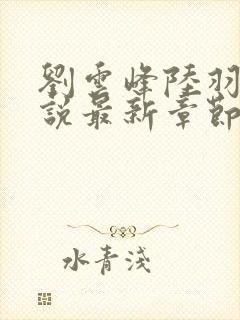 劉雲峰陸羽
說最新章節
水青淺